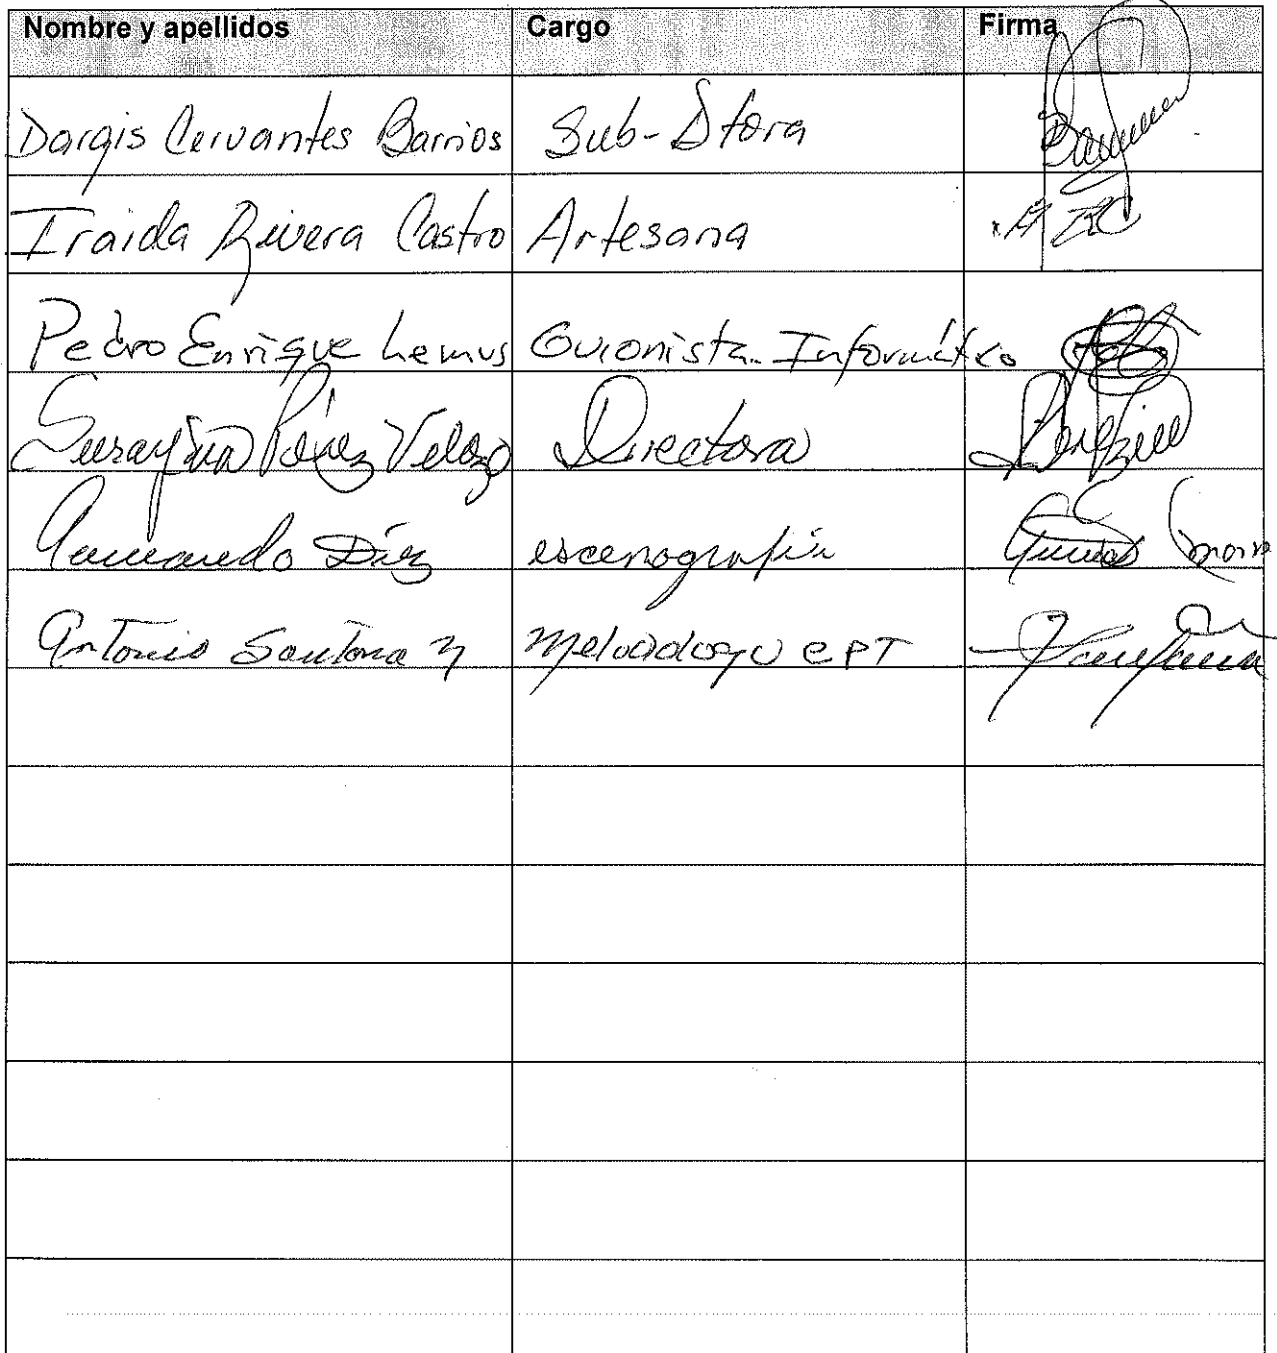 Nombre y apellidos Cargo Firma
Dargis Cervantes Barrios Sub-Dtora
Iraida Rivera Castro Artesana
Pedro Enrique Lemus Guionista-Informático
Pérez Velazo Directora
Armando Díaz escenografía
Antonio Santana EPT